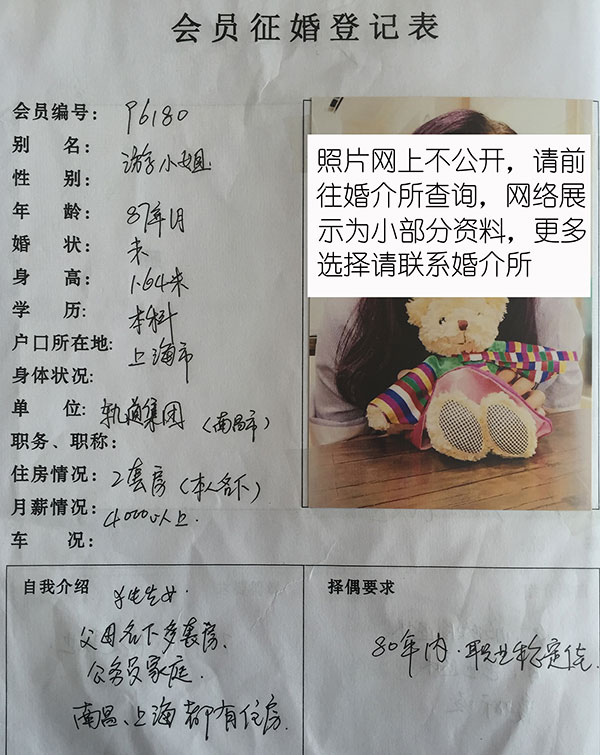 会员征婚登记表
会员编号: P6180
别 名: 游小姐
性 别:
年 龄: 87年1月
婚 状: 未
身 高: 1.64米
学 历: 本科
户口所在地: 上海市
身体状况:
单 位: 轨道集团 (南昌市)
职务、职称:
住房情况: 2套房 (本人名下)
月薪情况: 4000以上.
车 况:
照片网上不公开，请前
往婚介所查询，网络展
示为小部分资料，更多
选择请联系婚介所
自我介绍
独生女.
父母名下多套房.
公务员家庭.
南昌、上海都有住房.
择偶要求
80年内.职业稳定